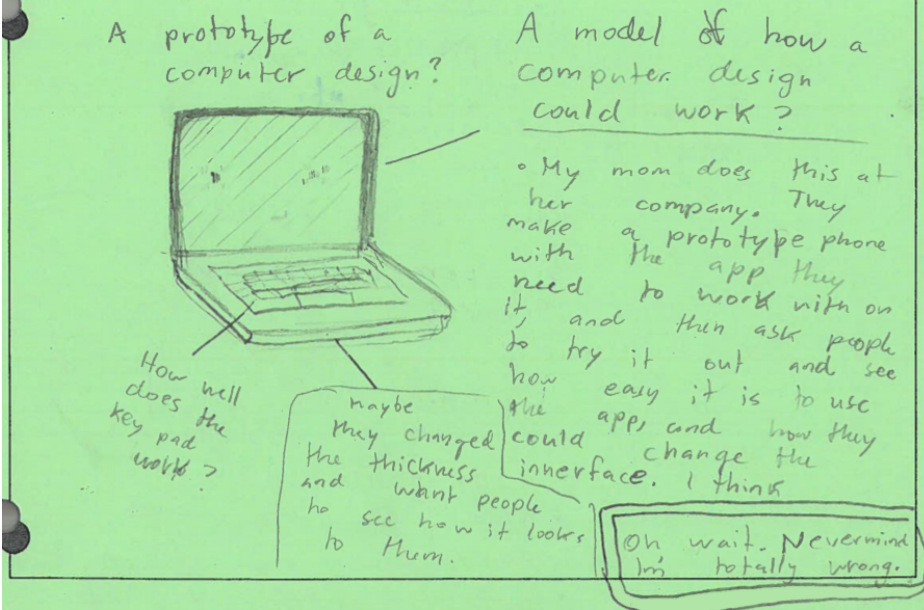 A prototype of a
computer design?
A model of how a
computer design
could work?
• My mom does this at
her company. They
make a prototype phone
with the app they
need to work with on
it, and then ask people
to try it out and see
how easy it is to use
the app, and how they
could change the
innerface. I think
Oh wait. Nevermind
Im totally wrong.
How well
does the
key pad
work?
maybe
they changed
the thickness
and want people
to see how it looks
to them.